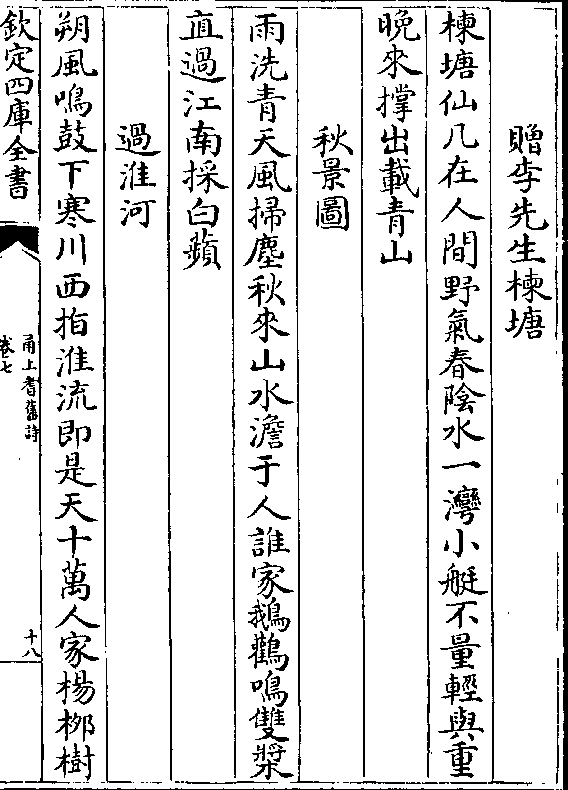 贈李先生楝塘
楝塘仙凡在人間野氣春陰水一灣小艇不量輕與重
晚來撑出載青山
秋景圖
雨洗青天風掃塵秋來山水澹于人誰家鵝鸛鳴雙槳
直過江南採白蘋
過淮河
朔風鳴鼓下寒川西指淮流即是天十萬人家楊桞樹
欽定四庫全書
甬上耆舊詩
卷七
十八